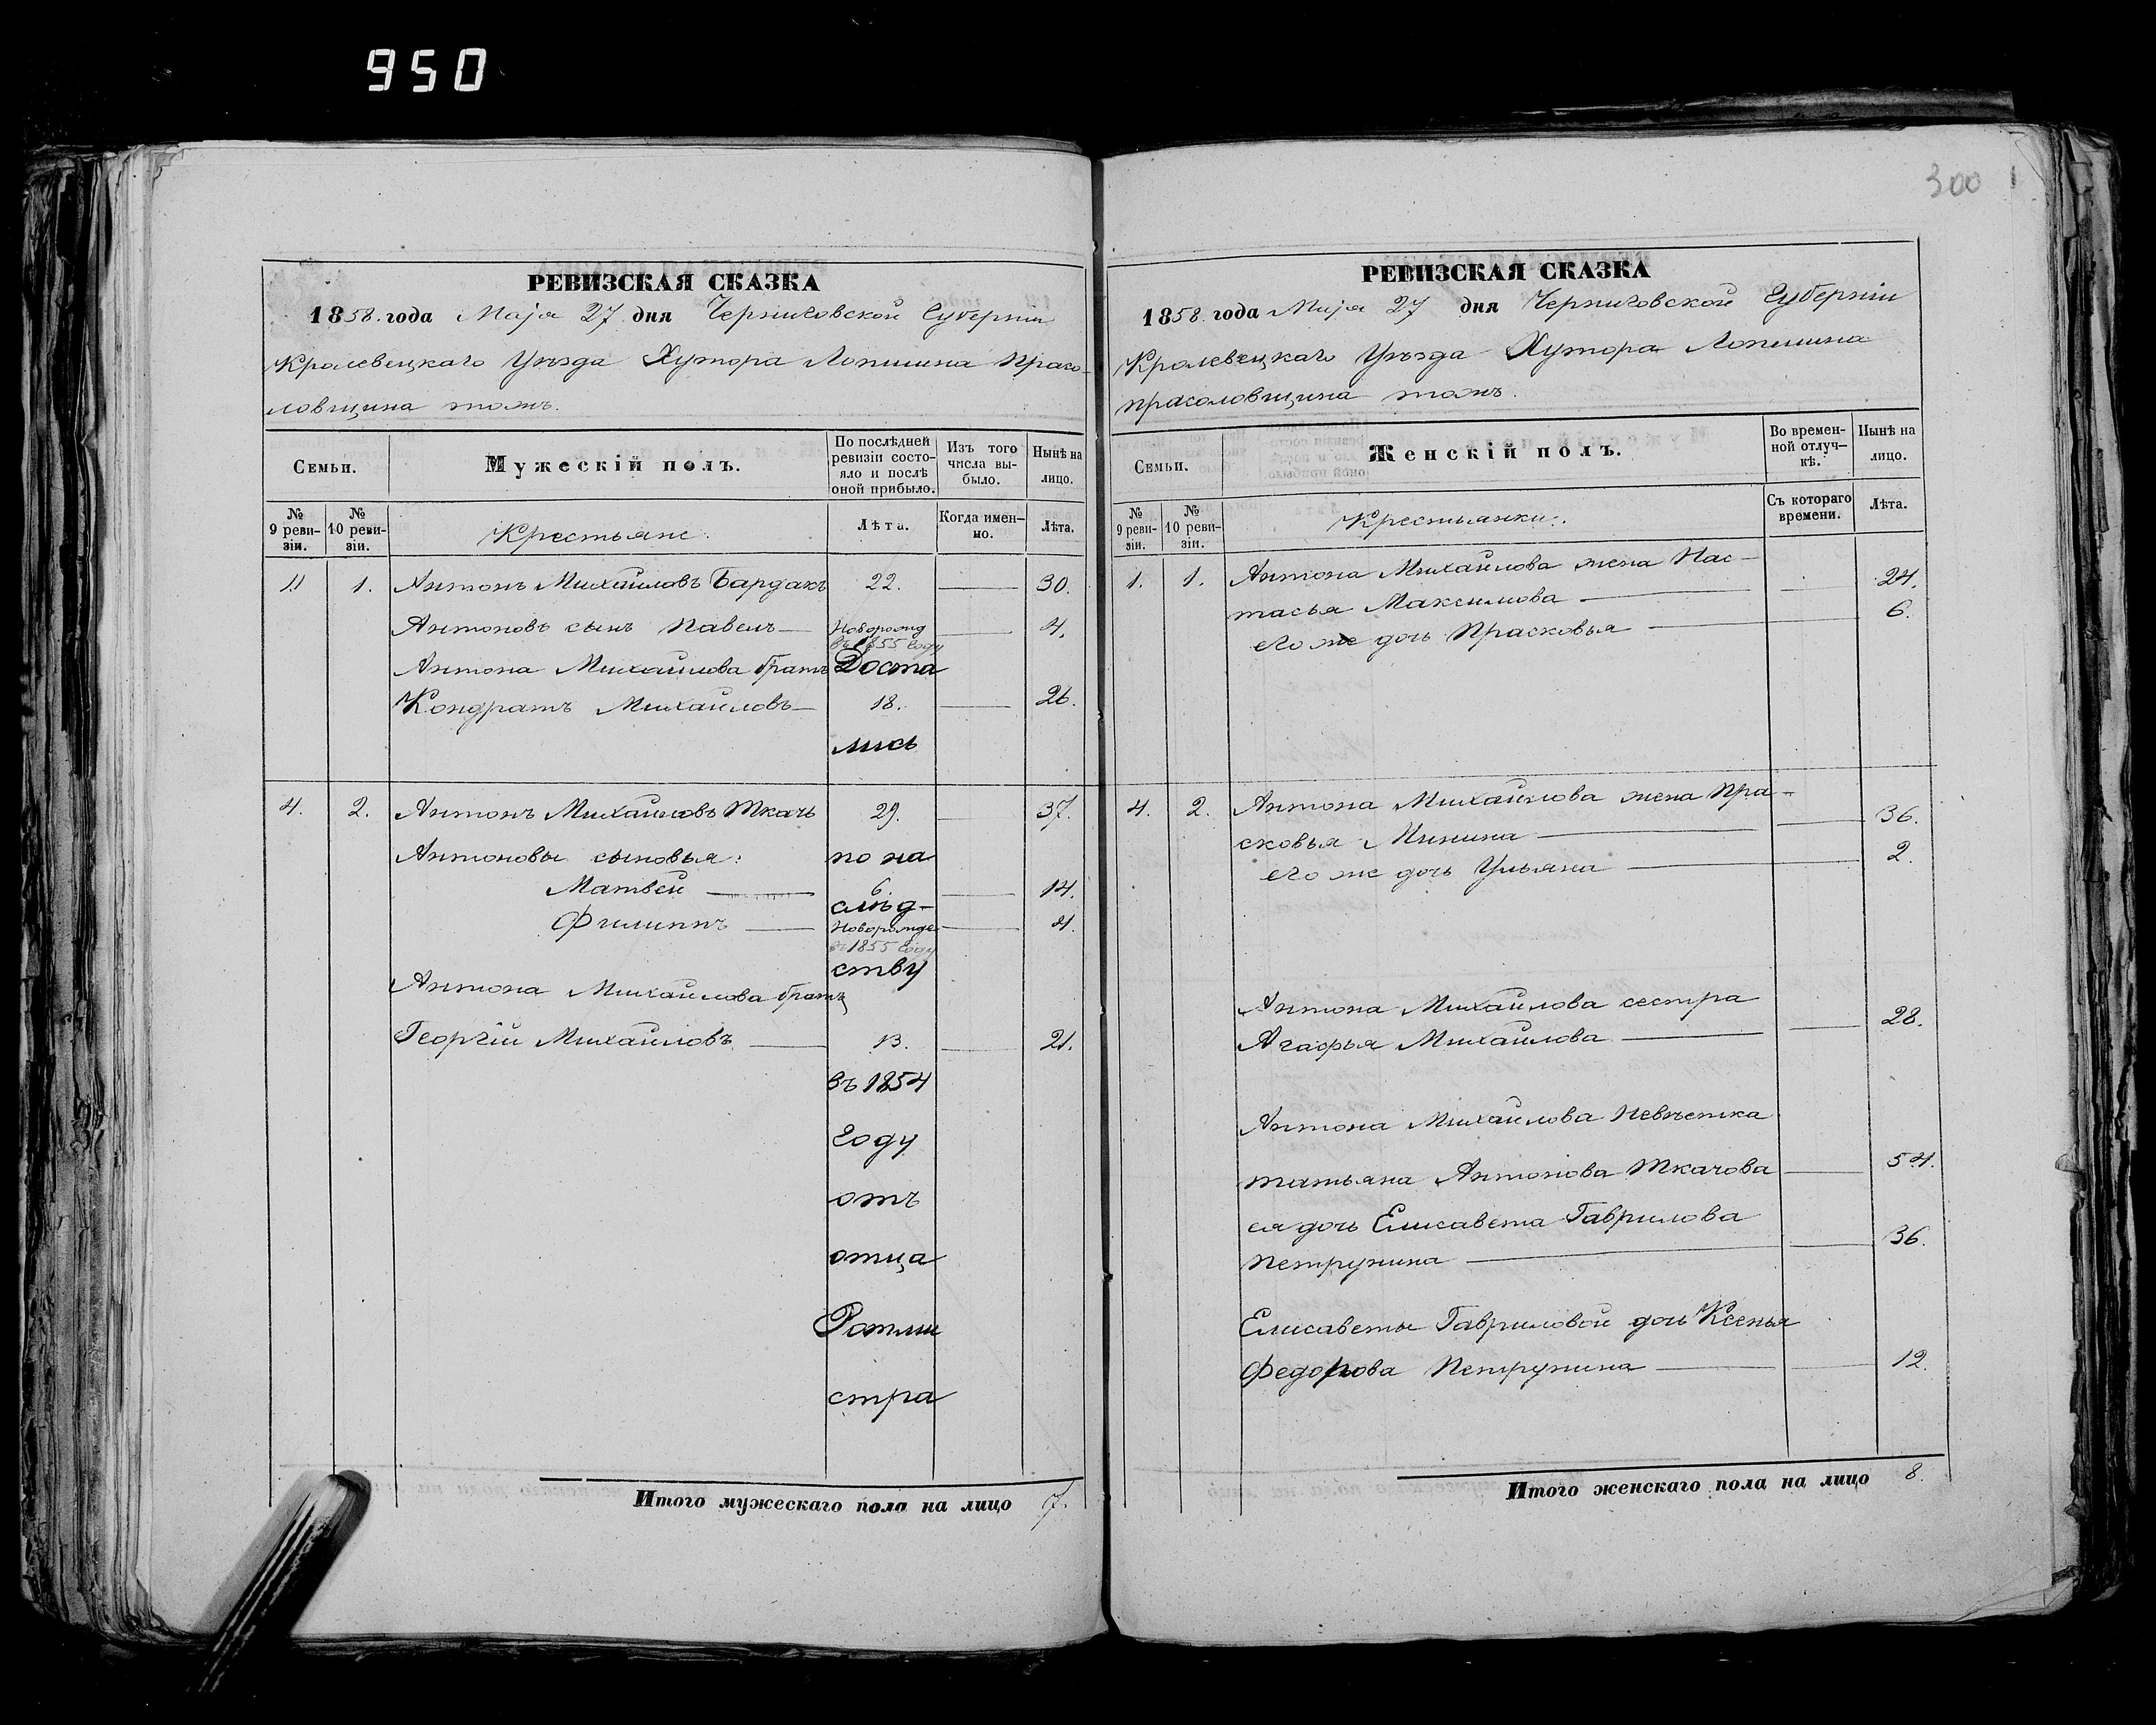 950
300
РЕВИЗСКАЯ СКАЗКА
1858. года Маја 27 дня Черниговской Губерніи
Кролевецкаго Уѣзда Хутора Лопшина Прасо-
ловщина тожъ.
Семьи.
Мужескій полъ.
По послѣдней ревизіи состо-яло и послѣ оной прибыло.
Изъ того числа вы-было.
Нынѣ на лицо.
№ 9 реви-зіи.
№ 10 реви-зіи.
Крестьяне.
Лѣта.
Когда имен-но.
Лѣта.
1. 1. Антонъ Михайловъ Бардакъ 22. 30.
Антоновъ сынъ Павелъ Новорожд 4.
въ 1855 году
Антона Михайлова братъ Доста
Кондратъ Михайловъ 18. 26.
лись
4. 2. Антонъ Михайловъ Ткачъ 29. 37.
Антоновы сыновья: по на
Матвей 6. 14.
слѣд-
Филиппъ Новорожде 4.
въ 1855 году
ству
Антона Михайлова братъ
Георгій Михайловъ 13. 21.
въ 1854
году
отъ
отца
Ротми
стра
Итого мужескаго пола на лицо 7.
РЕВИЗСКАЯ СКАЗКА
1858. года Маја 27 дня Черниговской Губерніи
Кролевецкаго Уѣзда Хутора Лопшина
прасоловщина тожъ.
Семьи.
Женскій полъ.
Во времен-ной отлуч-кѣ.
Нынѣ на лицо.
№ 9 реви-зіи.
№ 10 реви-зіи.
Крестьянки.
Съ котораго времени.
Лѣта.
1. 1. Антона Михайлова жена Нас-
тасья Максимова 24.
его же дочь Прасковья 6.
4. 2. Антона Михайлова жена Пра-
сковья Минина 36.
его же дочь Ульяна 2.
Антона Михайлова сестра
Агафья Михайлова 28.
Антона Михайлова Невѣстка
татьяна Антонова Ткачова 54.
ея дочь Елисавета Гаврилова
Петрунина 36.
Елисаветы Гавриловой дочь Ксенья
Федорова Петрунина 12.
Итого женскаго пола на лицо 8.